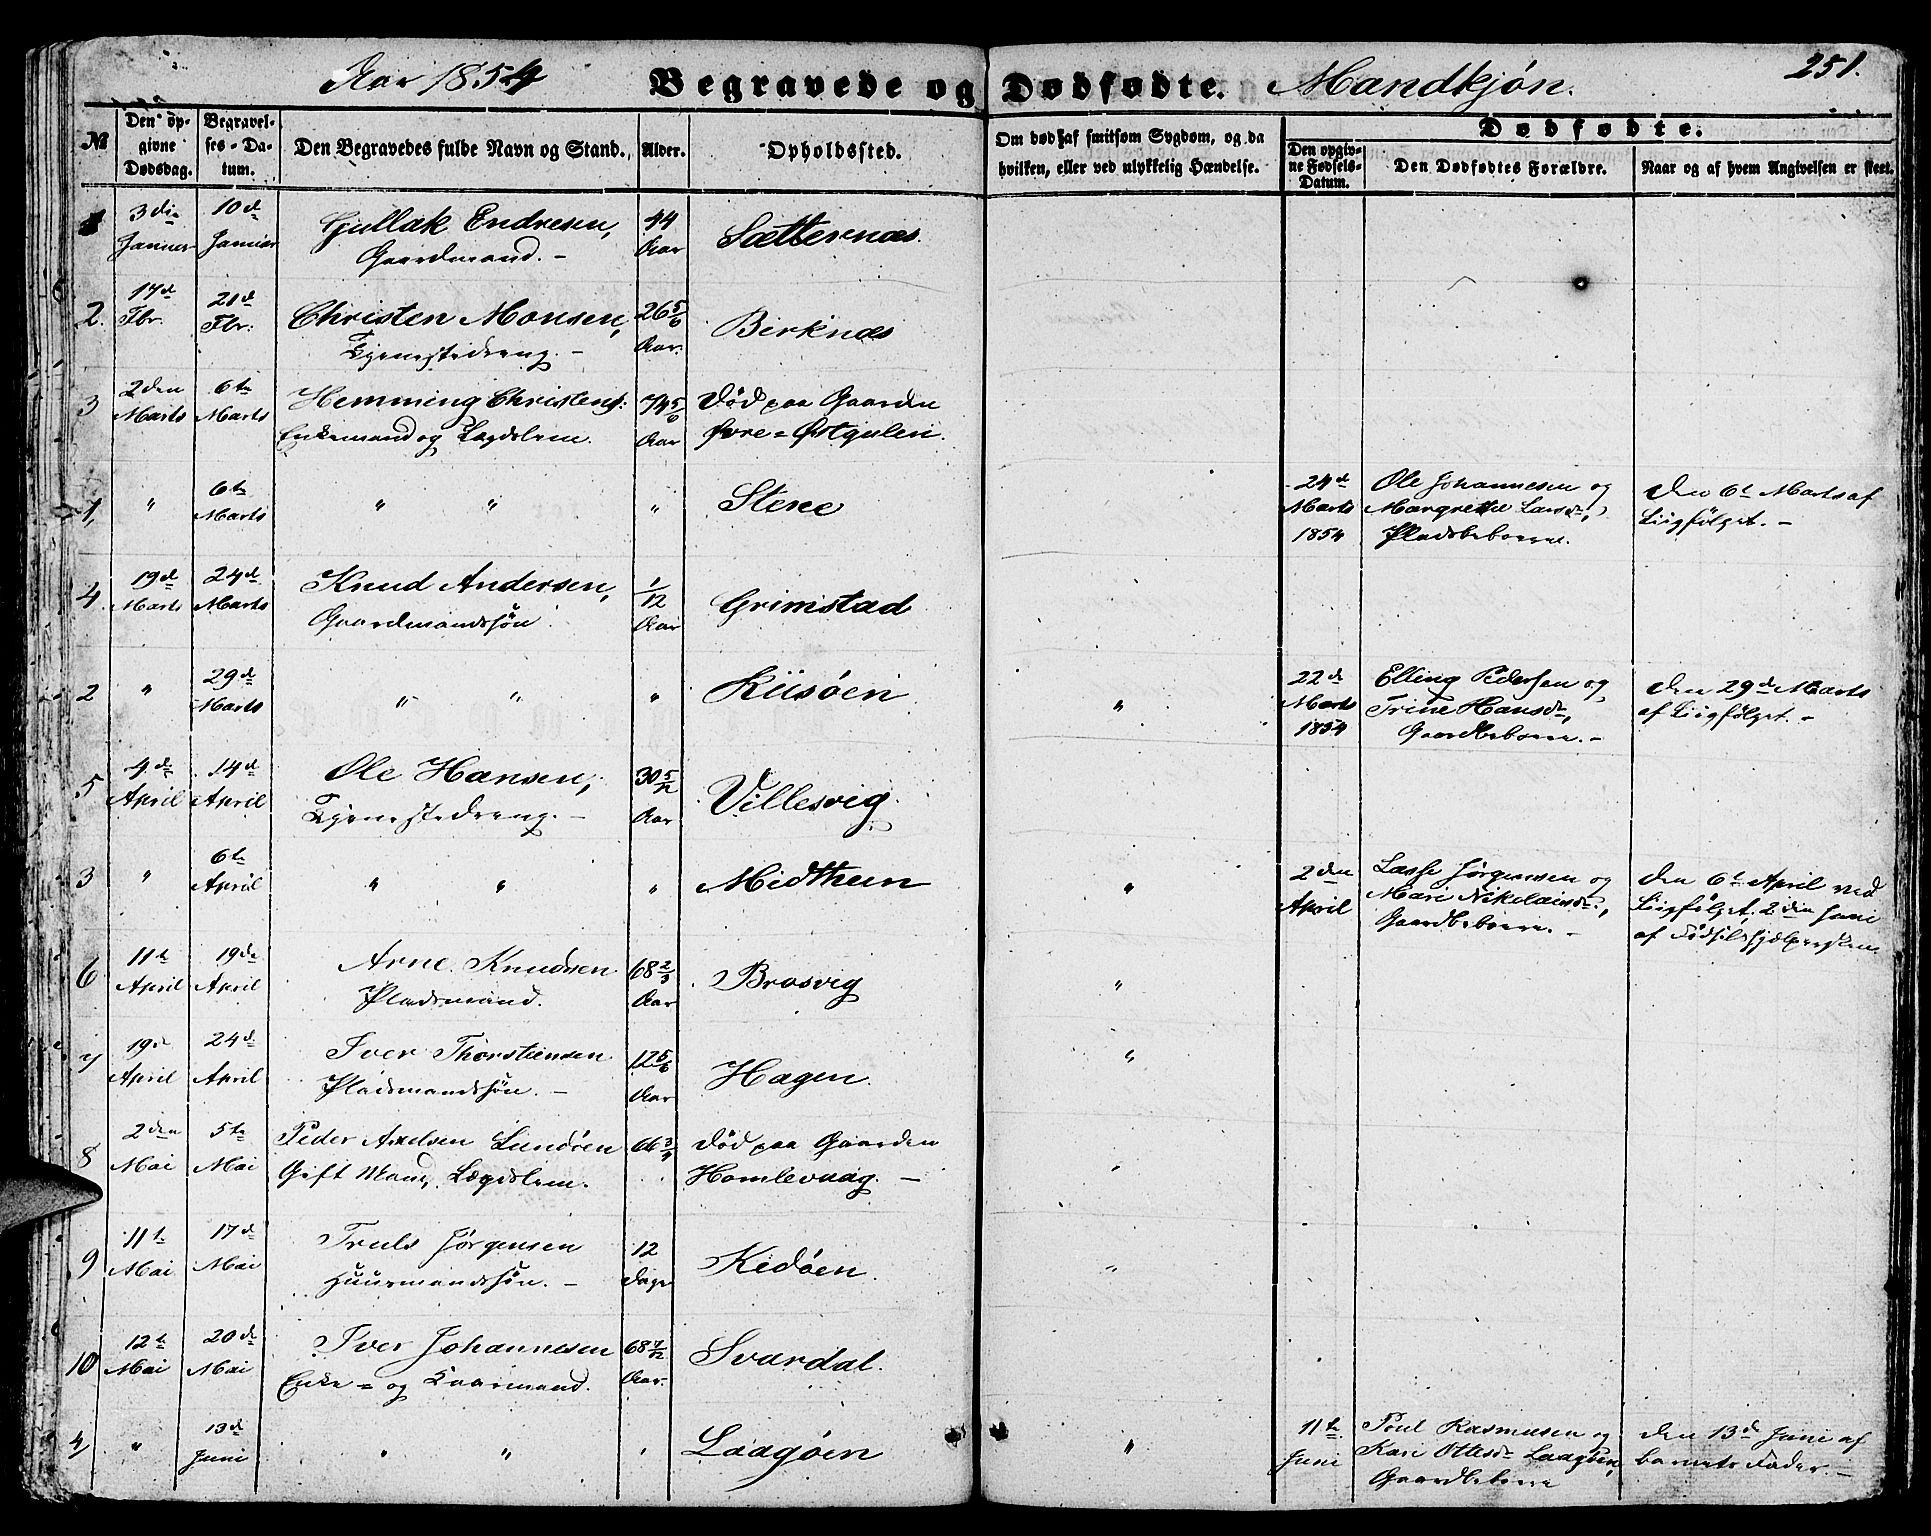 Aar 1854 Begravede og Dødfødte. Mandkjøn. 251.
№ Den op-givne Dødsdag. Begravel-ses-Da-tum. Den Begravedes fulde Navn og Stand. Alder. Opholdssted. Om død af smitsom Sygdom, og da hvilken, eller ved ulykkelig Hændelse. Dødfødte. Den opgiv-ne Fødsels-Datum. Den Dødfødtes Forældre. Naar og af hvem Angivelsen er skeet.
1 3die Januar 10de Januar Gullak Endresen, 44 Aar Sætternæs.
Gaardmand. –
2. 17de Fbr. 21de Fbr: Christen Monsen, 26 5/6 Aar. Birknæs
Tjenestedreng. –
3 2den Marts 6te Marts Hemming Christens: 74 5/6 Aar Død paa Gaarden
Enkemand og Lægdslem. Øvre=Østgulen.
1, " 6te Marts " " " Stene 24de Marts 1854 Ole Johannesen og Den 6te Marts af
Margrethe Larsdr, Liigfølget. –
Pladsbeboere.
4. 19de Marts 24de Marts Knud Andersen, 1/12 Aar Grimstad
Gaardmandssøn.
2 " 29de Marts " " " Kiisøen " 22de Marts 1854 Elling Pedersen og Den 29de Marts
Trine Hansdr, af Liigfølget. –
Gaardbeboere. –
5 4de April 14de April Ole Hansen, 30 5/12 Aar Villesvig.
Tjenestedreng. –
3 " 6te April " " " Midthun " 2den April Lasse Jørgensen og Den 6te April ved
Mari Nikolaisdr, Liigfølget, 2den Juni
Gaardbeboere. – af Fødselshjælpersken
6 11te April 19de April Arne Knudsen 68 2/3 Aar Brosvig "
Pladsmand.
7 19de April 24de April Iver Thorstensen 12 5/6 Aar Hagen. "
Pladsmandssøn. –
8 2den Mai 5te Mai Peder Axelsen Lundøen 66 3/4 Død paa Gaarden "
Gift Mand, Lægdslem. Homlevaag. –
9 11te Mai 17de Mai Truls Jørgensen 12 Dage Kidøen. "
Huusmandssøn. –
10 12te Mai 20de Mai Iver Johannesen 68 7/12 Aar. Svardal. "
Enke= og Kaarmand.
4 " 13de Juni " " " Laagøen " 11te Juni Poul Rasmusen og Den 13de Juni af
Kari Ottesdr Laagøen, barnets Fader. –
Gaardbeboere